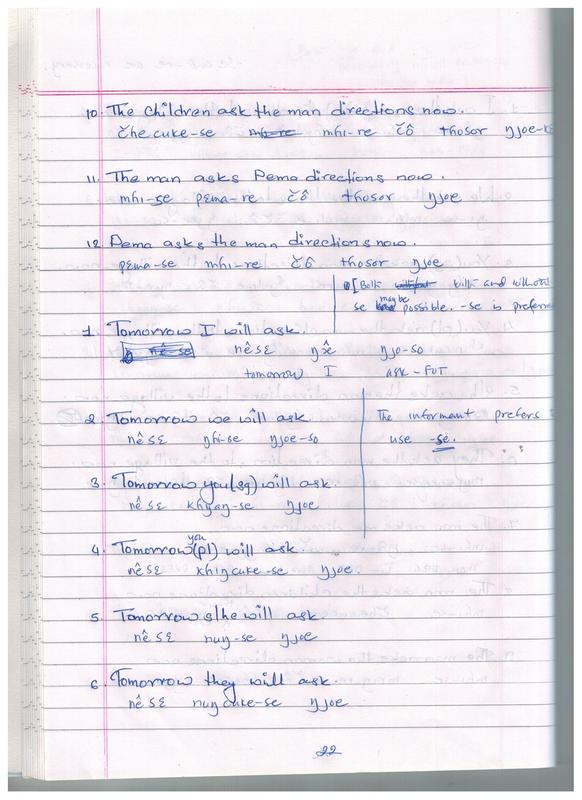 10. The children ask the man directions now.
čhe cuke-se mhi-re mhi-re čô thosor ŋjoe-
11. The man asks Pema directions now.
mhi-se pɛma-re čô thosor ŋjoe
12 Pema asks the man directions now.
pɛma-se mhi-re čô thosor ŋjoe
[Both without with and without
se may be possible. -se is preferre
1. Tomorrow I will ask.
nê-se nêsɛ ŋjo-so
tomorrow I ask-FUT
2. Tomorrow we will ask
nêsɛ ŋhi-se ŋjoe-so
The informant prefers
use -se.
3. Tomorrow you(sg) will ask.
nêsɛ khyaŋ-se ŋjoe
4. Tomorrow you (pl) will ask.
nêsɛ khiŋcuke-se ŋjoe.
5. Tomorrow s/he will ask.
nêsɛ nuŋ-se ŋjoe
6. Tomorrow they will ask.
nêsɛ nuŋcuke-se ŋjoe
22